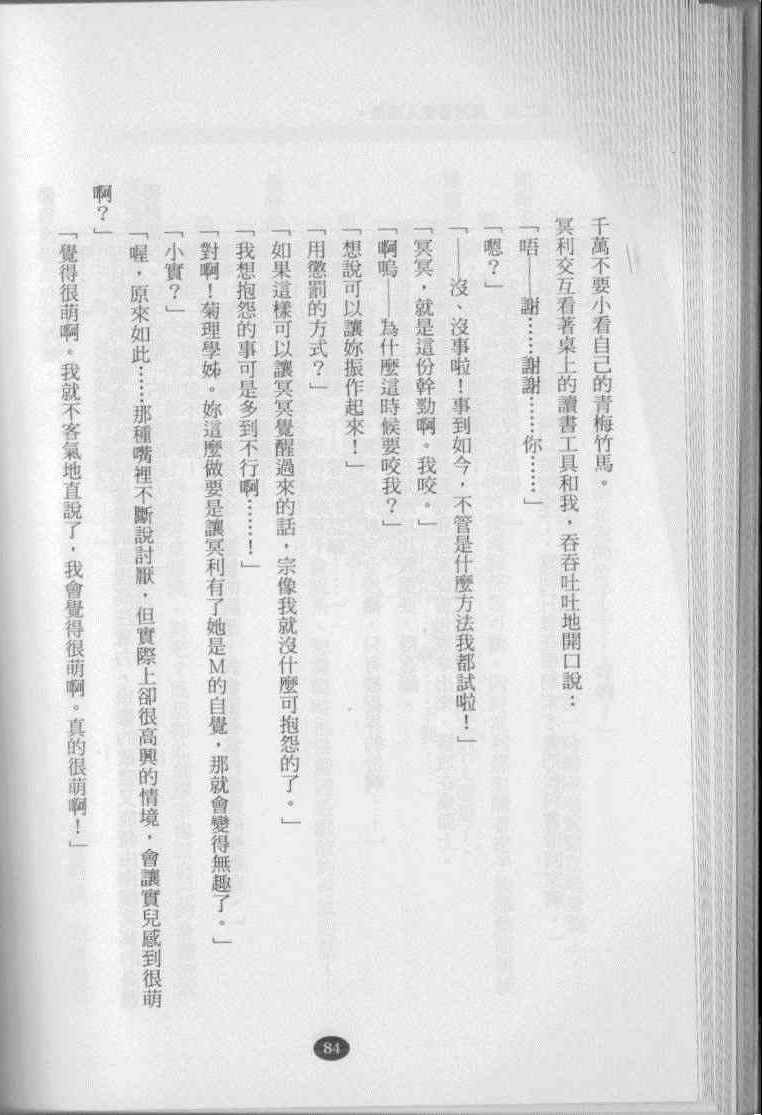 千萬不要小看自己的青梅竹馬。
冥利交互看著桌上的讀書工具和我，吞吞吐吐地開口說：
「唔——謝……謝謝……你……」
「嗯？」
「——沒、沒事啦！事到如今，不管是什麼方法我都試啦！」
「冥冥，就是這份幹勁啊。我咬。」
「啊嗚——為什麼這時候要咬我？」
「想說可以讓妳振作起來！」
「用懲罰的方式？」
「如果這樣可以讓冥冥覺醒過來的話，宗像我就沒什麼可抱怨的了。」
「我想抱怨的事可是多到不行啊……！」
「對啊！菊理學姊。妳這麼做要是讓冥利有了她是M的自覺，那就會變得無趣了。」
「小實？」
「喔，原來如此……那種嘴裡不斷說討厭，但實際上卻很高興的情境，會讓實兒感到很萌
啊？」
「覺得很萌啊。我就不客氣地直說了，我會覺得很萌啊。真的很萌啊！」
84